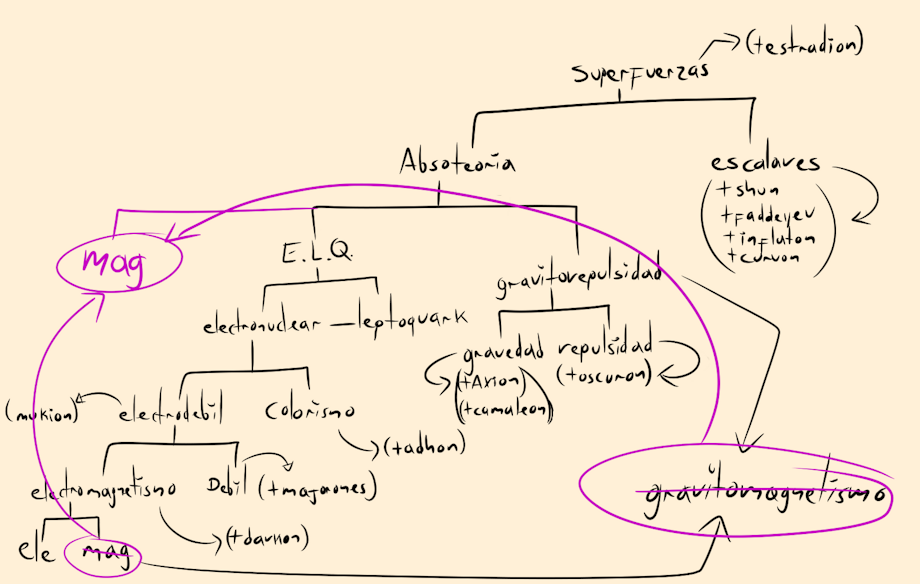 (+testradion)
Superfuerzas
Absoteoria
escalares
(+shun
+faddeyev
+inflaton
+curvon)
mag
E.L.Q.
gravitorepulsidad
electronuclear — leptoquark
gravedad repulsidad
(+Axion) (+oscuron)
(+camaleon)
(mukion) electrodebil Colorismo
(+adhon)
electromagnetismo Debil (+majorones)
gravitomagnetismo
(+darkon)
ele mag